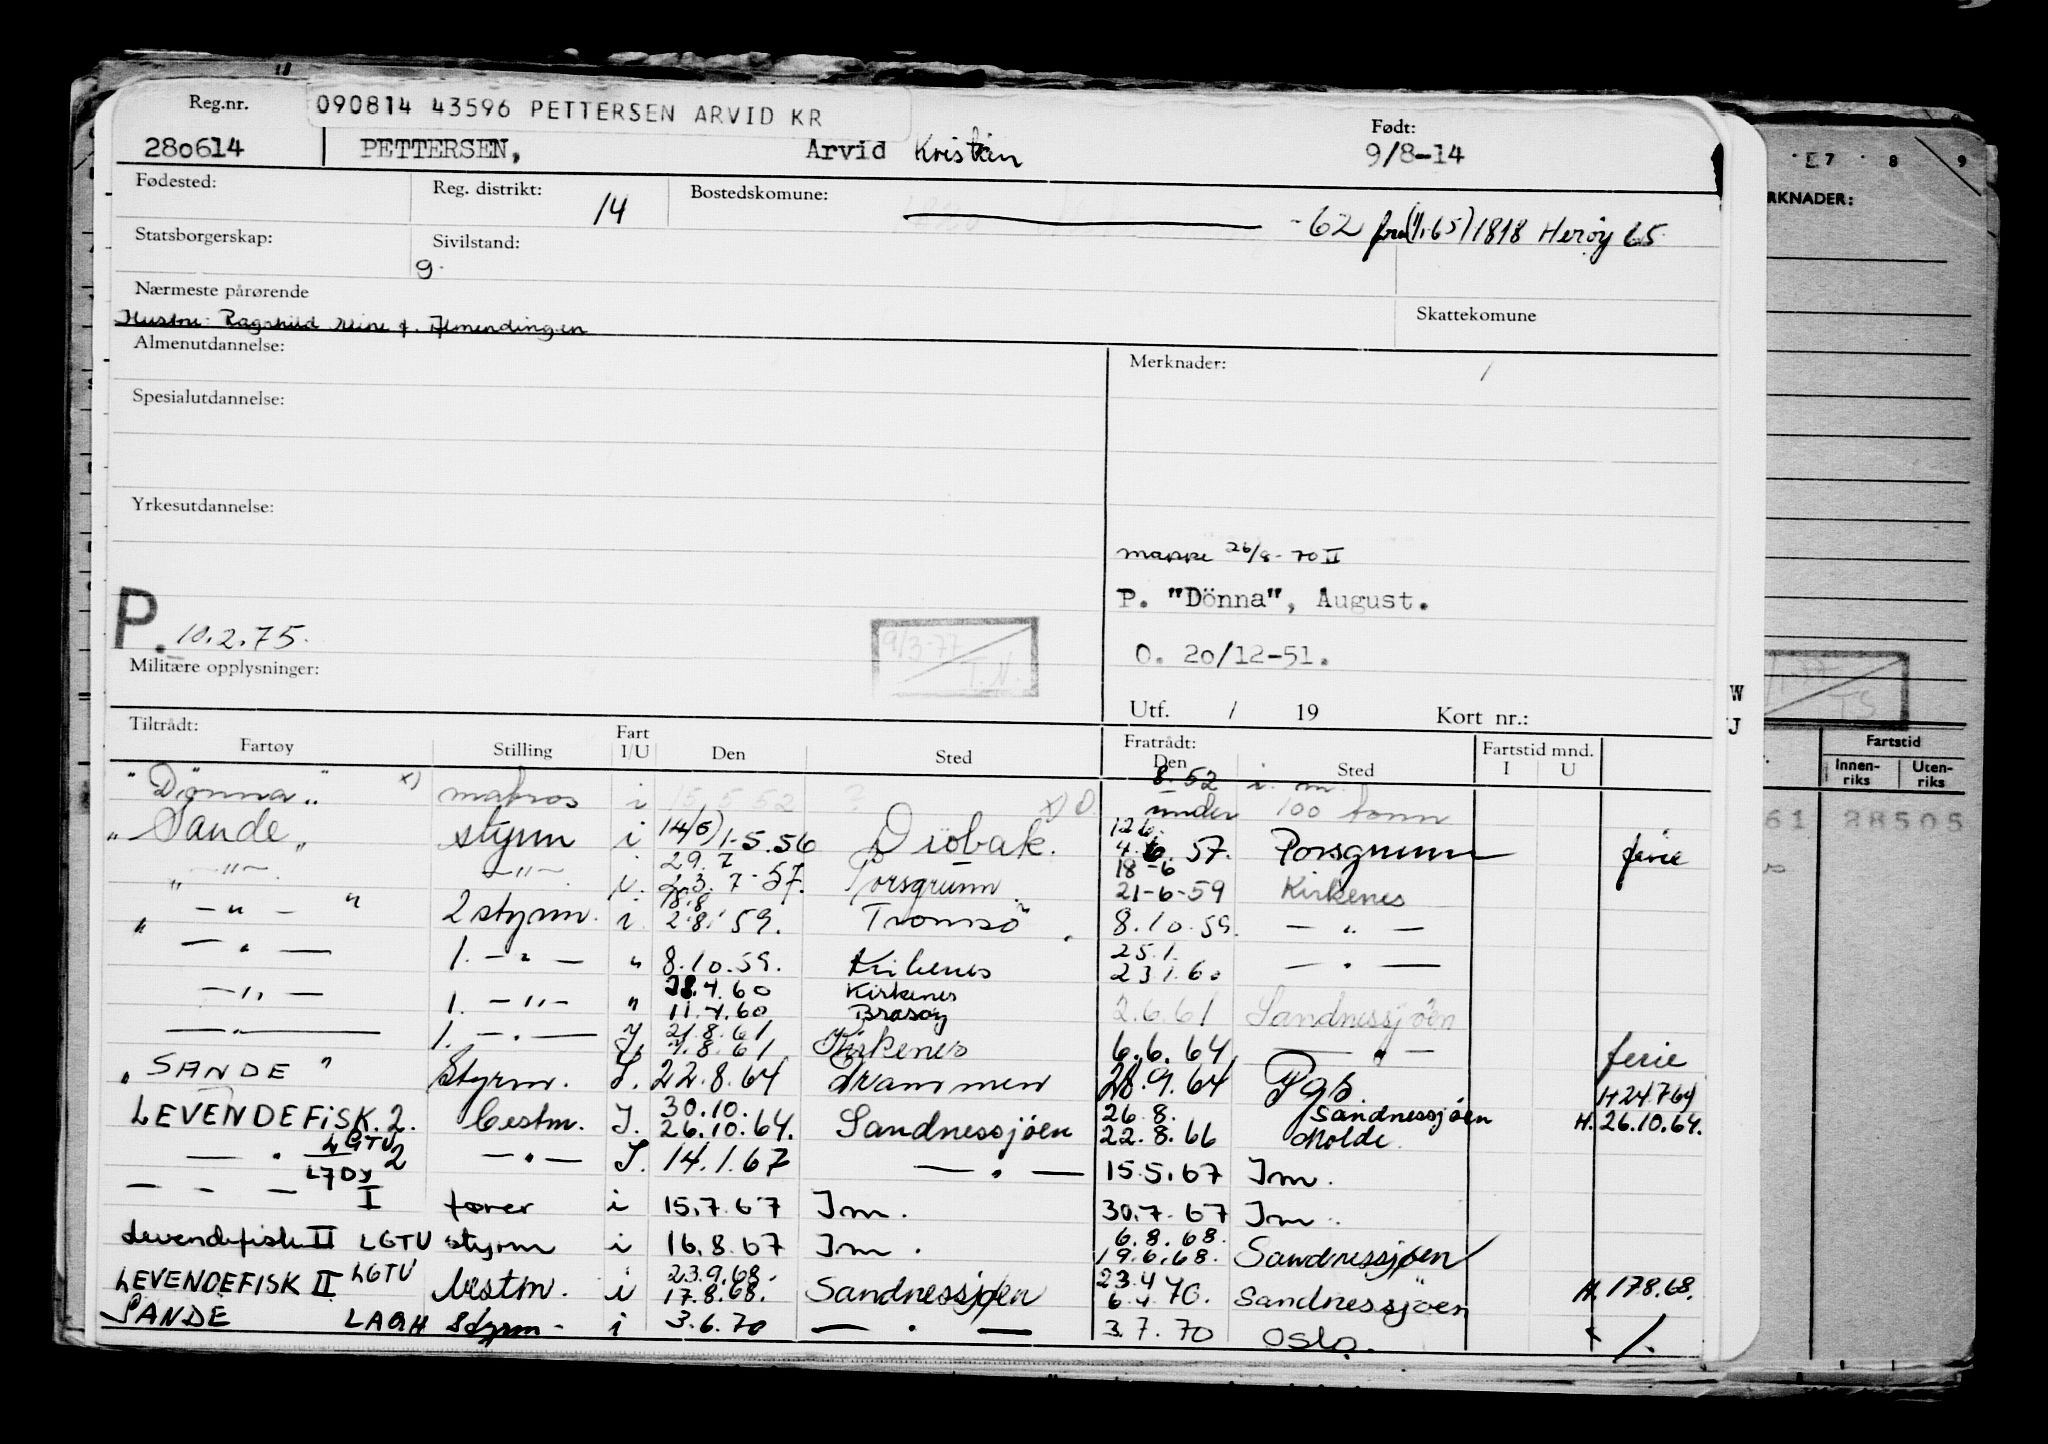 Reg.nr. 090814 43596 PETTERSEN ARVID KR Født:
280614 PETTERSEN, Arvid Kristian 9/8-14
Fødested: Reg. distrikt: 14 Bostedskomune: -62 fra (1/1-65) 1818 Herøy 65.
Statsborgerskap: Sivilstand:
9.
Nærmeste pårørende Skattekomune
Hustru: Ragnhild f. Almendingen
Almenutdannelse: Merknader: /
Spesialutdannelse:
Yrkesutdannelse:
mappe 26/8-70 II
P. "Dönna", August.
P. 10.2.75.
9/3-77 T.N.
O. 20/12-51.
Militære opplysninger:
Utf. / 19 Kort nr.:
Tiltrådt: Fratrådt:
Fartøy Stilling Fart I/U Den Sted Den Sted Fartstid mnd. I U
"Dönna" x) matros i 15.5.52 ? 8.52 i. m.
x) O under 100 tonn
"Sande" styrm i 14/5) 1.5.56 Dröbak. 12.6. 4.6.57. Porsgrunn ferie
" -"- -"- i. 29.7 23.7.57. Porsgrunn 18-6 21-6-59 Kirkenes
" -"- " 2 styrm. i 18.8 2.8.59. Tromsö 8.10.59. -"-
-"- 1. -"- " 8.10.59. Kirkenes 25.1. 23.1.60 -"-
-"- 1. -"- " 28.4.60 Kirkenes
11.4.60 Brasøy 2.6.61 Sandnessjöen
-"- 1. -"- I. 21.8.61 7.8.61 Kirkenes 6.6.64 -"- ferie
"SANDE" Styrm. I. 22.8.64 Drammen 28.9.64 Pgs. H 24.7.64
LEVENDEFISK.2. LGTU Bestm. I. 30.10. 26.10.64. Sandnessjöen 26.8. Sandnessjöen 22.8.66 Molde. H. 26.10.64.
-"- 2 -"- I. 14.1.67 -"- 15.5.67 Im.
- - - I fører i 15.7.67 Im. 30.7.67 Im.
Levendefisk II LGTU styrm i 16.8.67 Im. 6.8.68. 19.6.68. Sandnessjøen
LEVENDEFISK II LGTU Bestm. i 23.9.68. 17.8.68. Sandnessjøen 23.4 6.4.70. Sandnessjöen H. 17.8.68.
SANDE LAQH Styrm- i 3.6.70 -"- 3.7.70 Oslo.
7 8 9
RKNADER:
W
J
TS
Fartstid
Innen-riks Uten-riks
61 28505